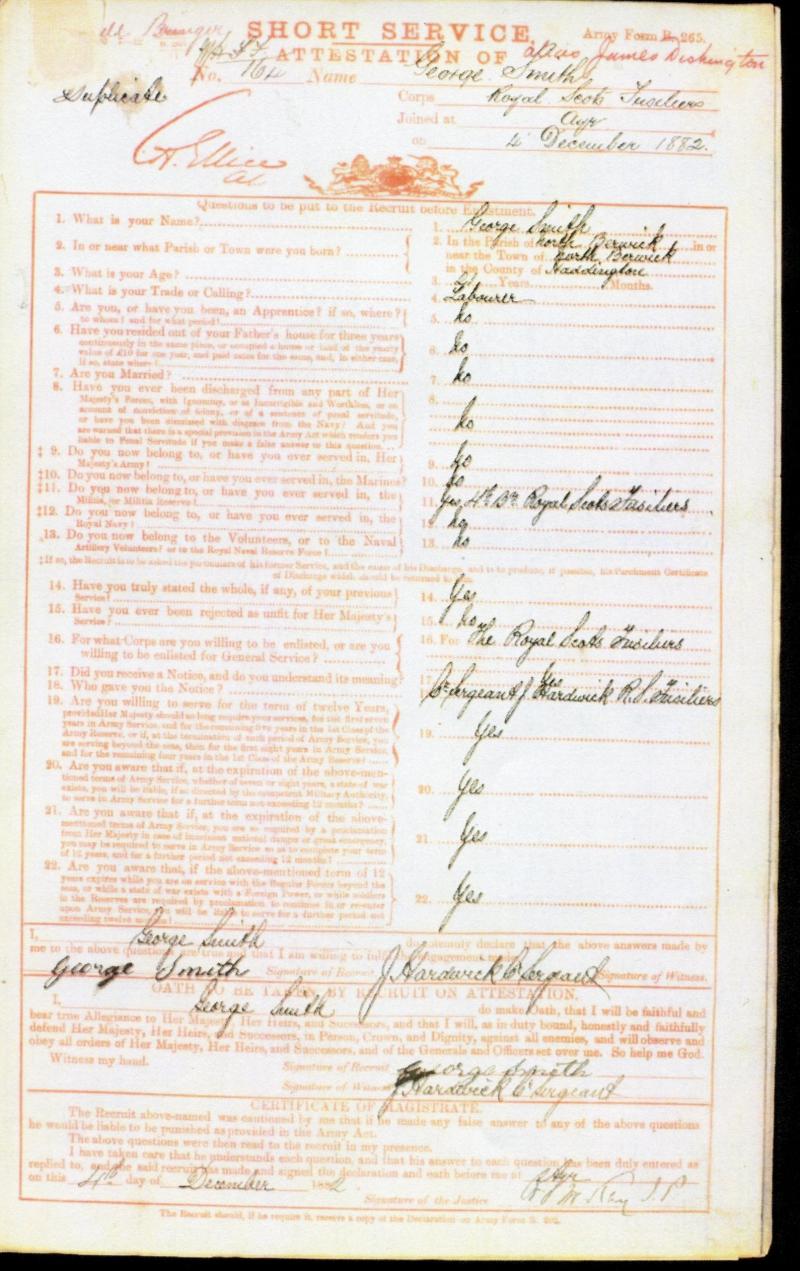 SHORT SERVICE.
Army Form B. 265.
ATTESTATION OF
alias James Dishington
No. 164 Name George Smith
Duplicate
Corps Royal Scots Fusiliers
Joined at Ayr
on 4 December 1882.
Questions to be put to the Recruit before Enlistment.
1. What is your Name? 1. George Smith
2. In or near what Parish or Town were you born? 2. In the Parish of North Berwick in or
near the Town of North Berwick
in the County of Haddington
3. What is your Age? 3. Years Months.
4. What is your Trade or Calling? 4. Labourer
5. Are you, or have you been, an Apprentice? if so, where? 5. No
to whom? and for what period?
6. Have you resided out of your Father's house for three years 6. No
continuously in the same place, or occupied a house or land of the yearly
value of £10 for one year, and paid rates for the same, and, in either case,
if so, state where?
7. Are you Married? 7. No
8. Have you ever been discharged from any part of Her 8. No
Majesty's Forces, with Ignominy, or as Incorrigible and Worthless, or on
account of conviction of felony, or of a sentence of penal servitude,
or have you been dismissed with disgrace from the Navy? And you
are warned that there is a special provision in the Army Act which renders you
liable to Penal Servitude if you make a false answer to this question.
‡ 9. Do you now belong to, or have you ever served in, Her 9. No
Majesty's Army?
‡10. Do you now belong to, or have you ever served in, the Marines? 10. No
‡11. Do you now belong to, or have you ever served in, the 11. Yes, 4th Bn Royal Scots Fusiliers
Militia, or Militia Reserve?
‡12. Do you now belong to, or have you ever served in, the 12. No
Royal Navy?
13. Do you now belong to the Volunteers, or to the Naval 13. No
Artillery Volunteers? or to the Royal Naval Reserve Force?
‡If so, the Recruit is to be asked the particulars of his former Service, and the cause of his Discharge, and is to produce, if possible, his Parchment Certificate
of Discharge which should be returned to him.
14. Have you truly stated the whole, if any, of your previous 14. Yes
Service?
15. Have you ever been rejected as unfit for Her Majesty's 15. No
Service?
16. For what Corps are you willing to be enlisted, or are you 16. For The Royal Scots Fusiliers
willing to be enlisted for General Service?
17. Did you receive a Notice, and do you understand its meaning? 17. Yes
18. Who gave you the Notice? Cr Sergeant J. Hardwick R. S. Fusiliers
19. Are you willing to serve for the term of twelve Years, 19. Yes
provided Her Majesty should so long require your services, for the first seven
years in Army Service, and for the remaining five years in the 1st Class of the
Army Reserve, or if, at the termination of such period of Army Service, you
are serving beyond the seas, then for the first eight years in Army Service,
and for the remaining four years in the 1st Class of the Army Reserve?
20. Are you aware that if, at the expiration of the above-men- 20. Yes
tioned terms of Army Service, whether of seven or eight years, a state of war
exists, you will be liable, if so directed by the competent Military Authority,
to serve in Army Service for a further term not exceeding 12 months?
21. Are you aware that if, at the expiration of the above- 21 Yes
mentioned terms of Army Service, you are so required by a proclamation
from Her Majesty in case of imminent national danger or great emergency,
you may be required to serve in Army Service so as to complete your term
of 12 years, and for a further period not exceeding 12 months?
22. Are you aware that, if the above-mentioned term of 12 22. Yes
years expires while you are on service with the Regular Forces beyond the
seas, or while a state of war exists with a Foreign Power, or while soldiers
in the Reserves are required by proclamation to continue in or re-enter
upon Army Service, you will be liable to serve for a further period not
exceeding twelve months?
I, George Smith do solemnly declare that the above answers made by
me to the above questions are true and that I am willing to fulfil the engagements made.
George Smith Signature of Recruit. J Hardwick Cr Sergeant Signature of Witness.
OATH TO BE TAKEN BY RECRUIT ON ATTESTATION.
I, George Smith do make Oath, that I will be faithful and
bear true Allegiance to Her Majesty, Her Heirs, and Successors, and that I will, as in duty bound, honestly and faithfully
defend Her Majesty, Her Heirs, and Successors, in Person, Crown, and Dignity, against all enemies, and will observe and
obey all orders of Her Majesty, Her Heirs, and Successors, and of the Generals and Officers set over me. So help me God.
Witness my hand. Signature of Recruit George Smith
Signature of Witness J Hardwick Cr Sergeant
CERTIFICATE OF MAGISTRATE.
The Recruit above-named was cautioned by me that if he made any false answer to any of the above questions
he would be liable to be punished as provided in the Army Act.
The above questions were then read to the recruit in my presence.
I have taken care that he understands each question, and that his answer to each question has been duly entered as
replied to, and the said recruit has made and signed the declaration and oath before me at Ayr
on this 4th day of December 1882
Signature of the Justice J.P.
The Recruit should, if he require it, receive a copy of the Declaration on Army Form B. 262.